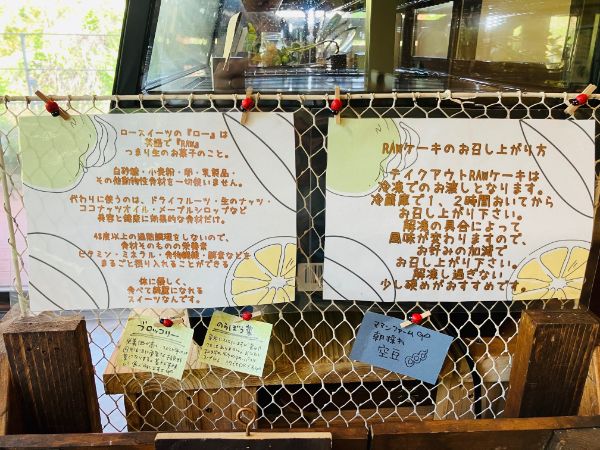 ロースイーツの『ロー』は
英語で『RAW』
つまり生のお菓子のこと。
白砂糖・小麦粉・卵・乳製品・
その他動物性食材を一切使いません。
代わりに使うのは、ドライフルーツ・生のナッツ・
ココナッツオイル・メープルシロップなど
美容と健康に効果的な食材だけ。
48度以上の加熱調理をしないので、
食材そのものの栄養素
ビタミン・ミネラル・食物繊維・酵素などを
まるごと摂り入れることができる
体に優しく、
食べて綺麗になれる
スイーツなんです。
RAWケーキのお召し上がり方
テイクアウトRAWケーキは
冷凍でのお渡しとなります。
冷蔵庫で1、2時間おいてから
お召し上がり下さい。
解凍の具合によって
風味が変わりますので、
お好みの加減で
お召し上がり下さい。
解凍し過ぎない
少し硬めがおすすめです。
ブロッコリー
のらぼう菜
ママンファーム
朝採れ
空豆